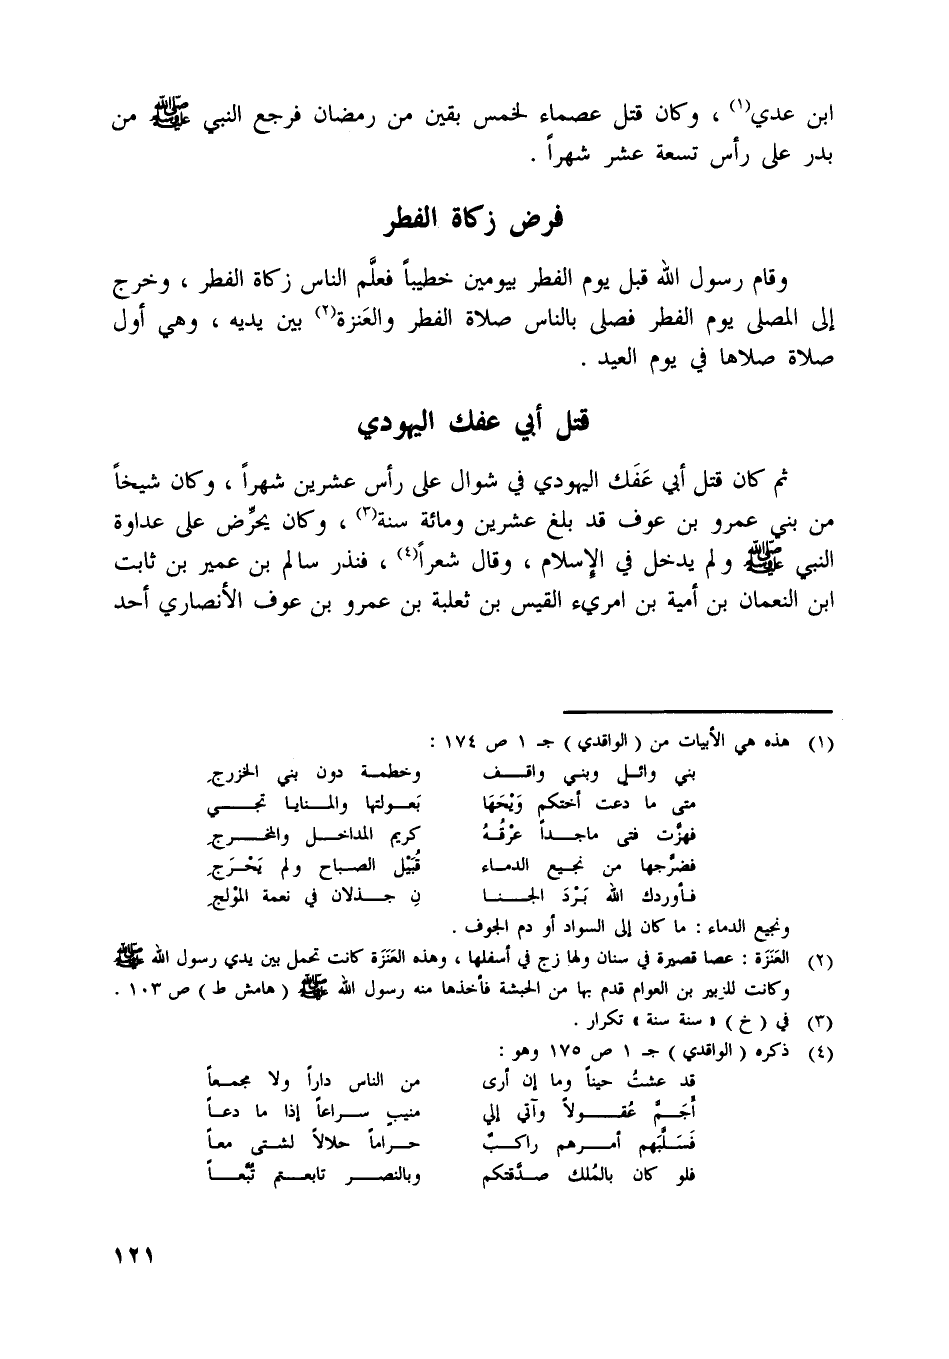 ابن عدي(١) ، وكان قتل عصماء لخمس بقين من رمضان فرجع النبي ﷺ من
بدر على رأس تسعة عشر شهراً .
فرض زكاة الفطر
وقام رسول الله قبل يوم الفطر بيومين خطيباً فعلَّم الناس زكاة الفطر ، وخرج
إلى المصلى يوم الفطر فصلى بالناس صلاة الفطر والعَنزة(٢) بين يديه ، وهي أول
صلاة صلاها في يوم العيد .
قتل أبي عفك اليهودي
ثم كان قتل أبي عَفَك اليهودي في شوال على رأس عشرين شهراً ، وكان شيخاً
من بني عمرو بن عوف قد بلغ عشرين ومائة سنة(٣) ، وكان يحرِّض على عداوة
النبي ﷺ ولم يدخل في الإسلام ، وقال شعراً(٤) ، فنذر سالم بن عمير بن ثابت
ابن النعمان بن أمية بن امريء القيس بن ثعلبة بن عمرو بن عوف الأنصاري أحد
(١) هذه هي الأبيات من ( الواقدي ) جـ ١ ص ١٧٤ :
بني وائـل وبني واقـف وخطمـة دون بني الخزرجِ
متى ما دعت أختكم وَيْحَهَا بَعـولتها والمـنايا تجـي
فهزَّت فتى ماجـداً عرْقُـهُ كريم المداخـل والمخـرجِ
فضرَّجها من نجـيع الدمـاء قُبَيْل الصبـاح ولم يَحْـرَجِ
فـأوردك الله بَـرْدَ الجـنـا نِ جـذلان في نعمة المَوْلجِ
ونجيع الدماء : ما كان إلى السواد أو دم الجوف .
(٢) العَنَزَة : عصا قصيرة في سنان ولها زج في أسفلها ، وهذه العَنَزَة كانت تحمل بين يدي رسول الله ﷺ
وكانت للزبير بن العوام قدم بها من الحبشة فأخذها منه رسول الله ﷺ ( هامش ط ) ص ١٠٣ .
(٣) في ( خ ) « سنة سنة » تكرار .
(٤) ذكره ( الواقدي ) جـ ١ ص ١٧٥ وهو :
قد عشتُ حيناً وما إن أرى من الناس داراً ولا مجمعاً
أَجَـمَّ عُقـولاً وآتي إلي منيبٍ سـراعاً إذا ما دعـا
فَسَـلَّبَهم أمـرهم راكـبٌ حـراماً حلالاً لشتى معـا
فلو كان بالمُلك صـدَّقتكم وبالنصـر تابعـتم تُبَّعـاً
١٢١